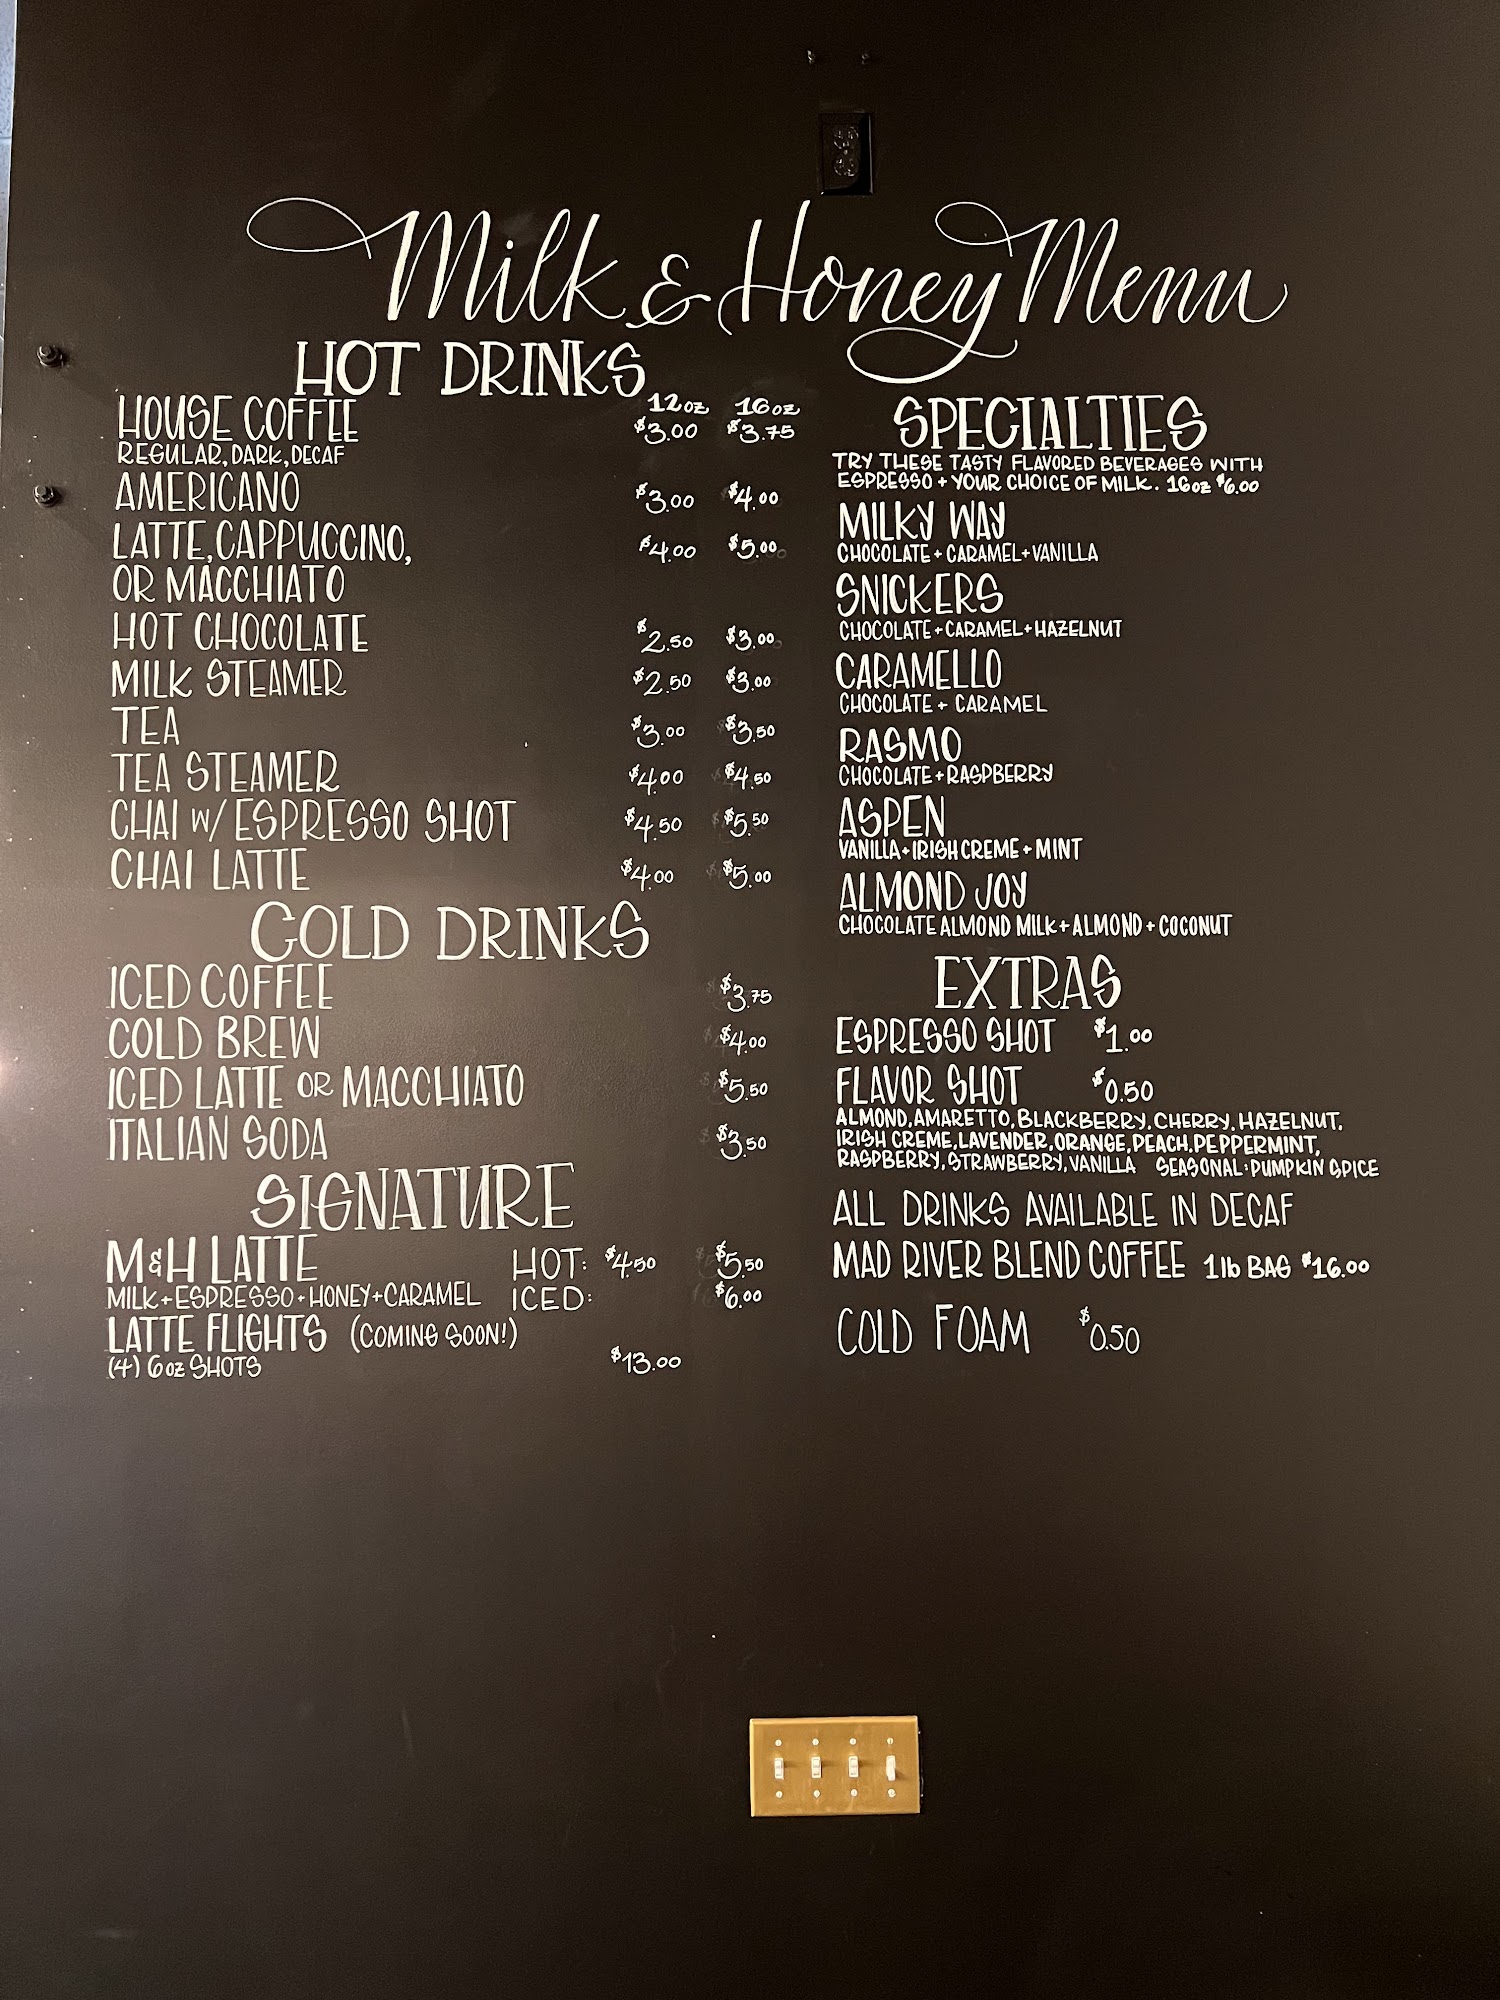 Milk & Honey Menu
HOT DRINKS
12oz 16oz
HOUSE COFFEE $3.00 $3.75
REGULAR, DARK, DECAF
AMERICANO $3.00 $4.00
LATTE, CAPPUCCINO, $4.00 $5.00
OR MACCHIATO
HOT CHOCOLATE $2.50 $3.00
MILK STEAMER $2.50 $3.00
TEA $3.00 $3.50
TEA STEAMER $4.00 $4.50
CHAI W/ ESPRESSO SHOT $4.50 $5.50
CHAI LATTE $4.00 $5.00
COLD DRINKS
ICED COFFEE $3.75
COLD BREW $4.00
ICED LATTE OR MACCHIATO $5.50
ITALIAN SODA $3.50
SIGNATURE
M&H LATTE HOT: $4.50 $5.50
MILK+ESPRESSO+HONEY+CARAMEL ICED: $6.00
LATTE FLIGHTS (COMING SOON!)
(4) 6oz SHOTS $13.00
SPECIALTIES
TRY THESE TASTY FLAVORED BEVERAGES WITH
ESPRESSO + YOUR CHOICE OF MILK. 16oz $6.00
MILKY WAY
CHOCOLATE + CARAMEL + VANILLA
SNICKERS
CHOCOLATE + CARAMEL + HAZELNUT
CARAMELLO
CHOCOLATE + CARAMEL
RASMO
CHOCOLATE + RASPBERRY
ASPEN
VANILLA + IRISH CREME + MINT
ALMOND JOY
CHOCOLATE ALMOND MILK + ALMOND + COCONUT
EXTRAS
ESPRESSO SHOT $1.00
FLAVOR SHOT $0.50
ALMOND, AMARETTO, BLACKBERRY, CHERRY, HAZELNUT,
IRISH CREME, LAVENDER, ORANGE, PEACH, PEPPERMINT,
RASPBERRY, STRAWBERRY, VANILLA SEASONAL: PUMPKIN SPICE
ALL DRINKS AVAILABLE IN DECAF
MAD RIVER BLEND COFFEE 1lb BAG $16.00
COLD FOAM $0.50